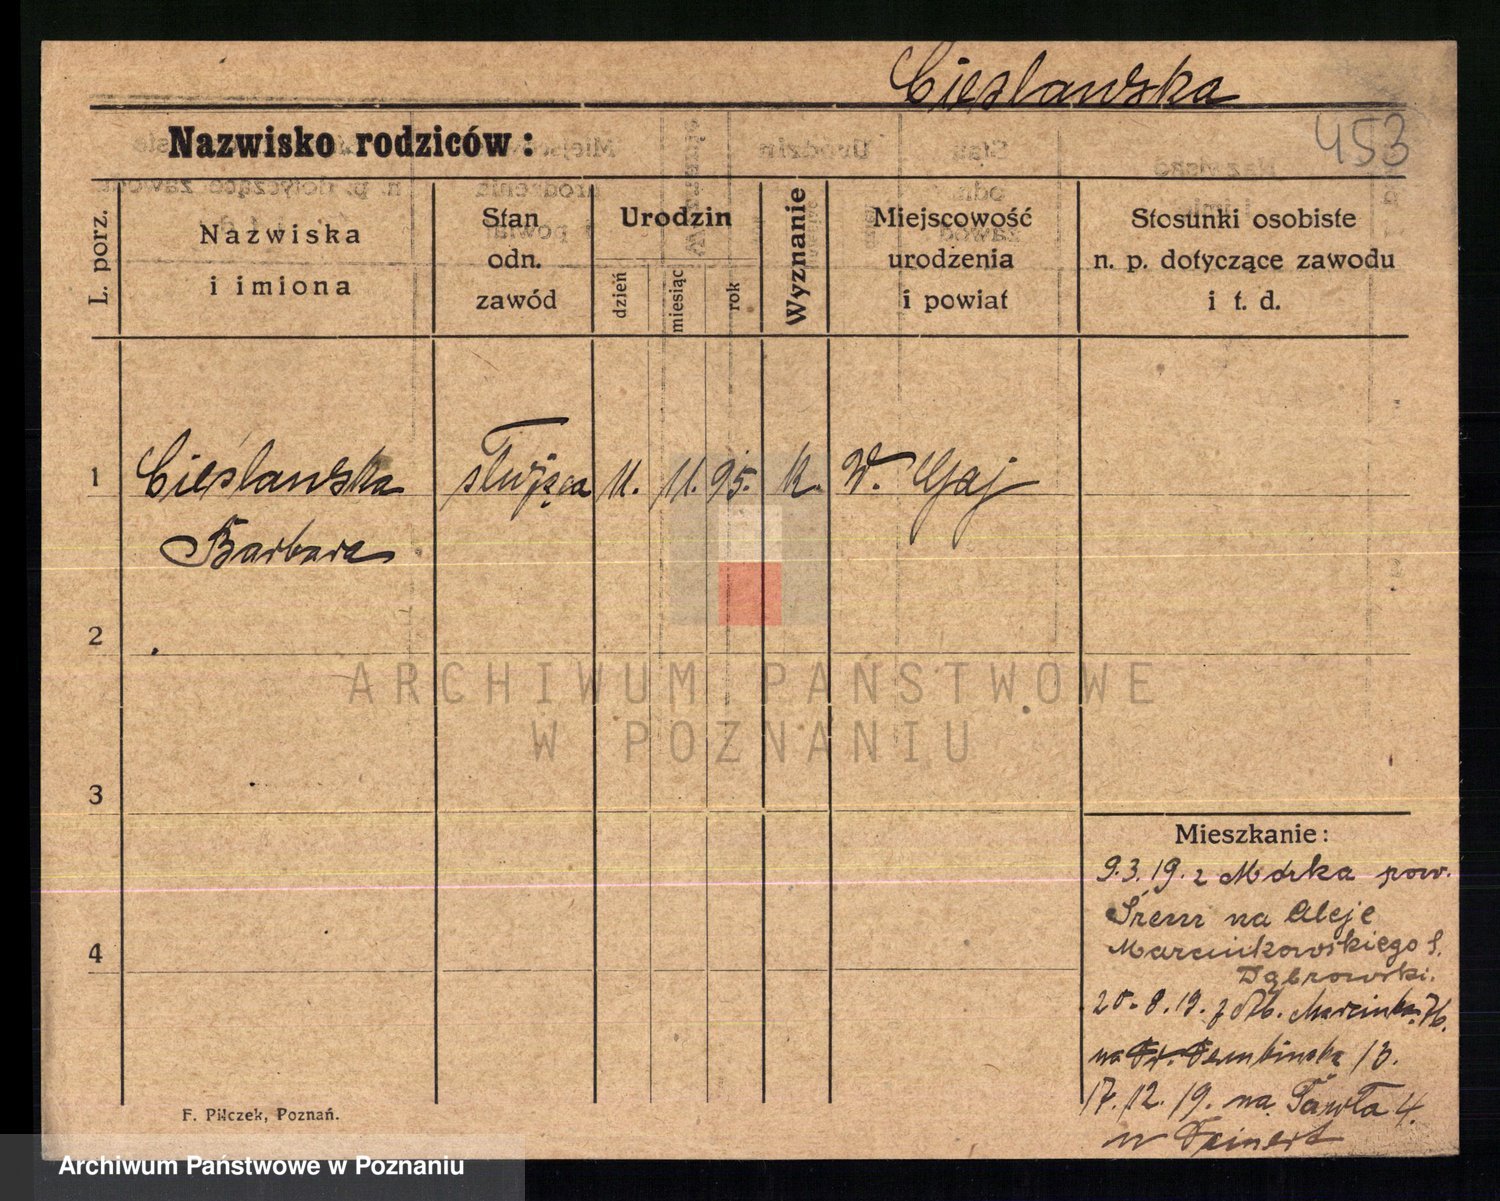 Cieślawska
453
Nazwisko rodziców:
L. porz.
Nazwiska
i imiona
Stan
odn.
zawód
Urodzin
dzień
miesiąc
rok
Wyznanie
Miejscowość
urodzenia
i powiat
Stosunki osobiste
n. p. dotyczące zawodu
i t. d.
1
Cieślawska
Barbara
służąca
11.
11.
95.
k.
W. Gaj
2
3
4
ARCHIWUM PAŃSTWOWE
W POZNANIU
Mieszkanie:
9.3.19. z pow.
Śrem na Aleje
Marcinkowskiego
Dąbrowski.
8.19. z Marcinka
na 13.
17.12.19. na Pawła 4.
F. Pilczek, Poznań.
Archiwum Państwowe w Poznaniu